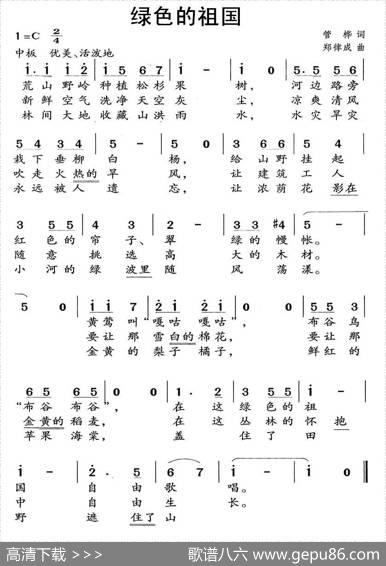 绿色的祖国
1=C 2/4
管 桦 词
中板 优美、活泼地
郑律成 曲
i. i i 2 | i 5 6 7 | i - | i 0 | 5 5 i 6 |
荒山野岭 种植松杉 果 树, 河边路旁
新鲜空气 洗净天空 灰 尘, 凉爽清风
林间大地 收藏山洪 雨 水, 水灾旱灾
5 4 3 4 | 5 2 | 5 - | 5 0 | 5 4 3 | 2 1 |
栽下垂柳 白 杨, 给山野 挂起
吹走火热的 旱 风, 让建筑 工人
永远被人 遗 忘, 让浓荫 花影在
3 5 5 | 4 3 | 2 - | 3 3 #4 | 5 - |
红 色的 帘子、 翠 绿的 幔 帐。
随 意 挑选 高 大的 木 材。
小 河的 绿波里 随 风 荡 漾。
5 0 | i i 7 | 2 i 2 i | 0 0 | 5 5 3 |
黄莺叫 “嘎咕 嘎咕”, 布谷鸟
要让那 雪白的棉花, 要让那
金黄的 梨子 橘子, 鲜红的
6 5 6 5 | 0 0 | 1. 2 | 3 5 5 5 | i - |
“布谷 布谷”, 在 这 绿色的 祖
金黄的稻麦, 在 这 丛林的 怀抱
苹果 海棠, 盖 住 了 田
i - | 2. 5 | 6 7 | i - | i 0 ||
国 自由歌 唱。
中 自由生 长。
野 遮住了山
高清下载 >>>
歌谱八六 www.gepu86.com